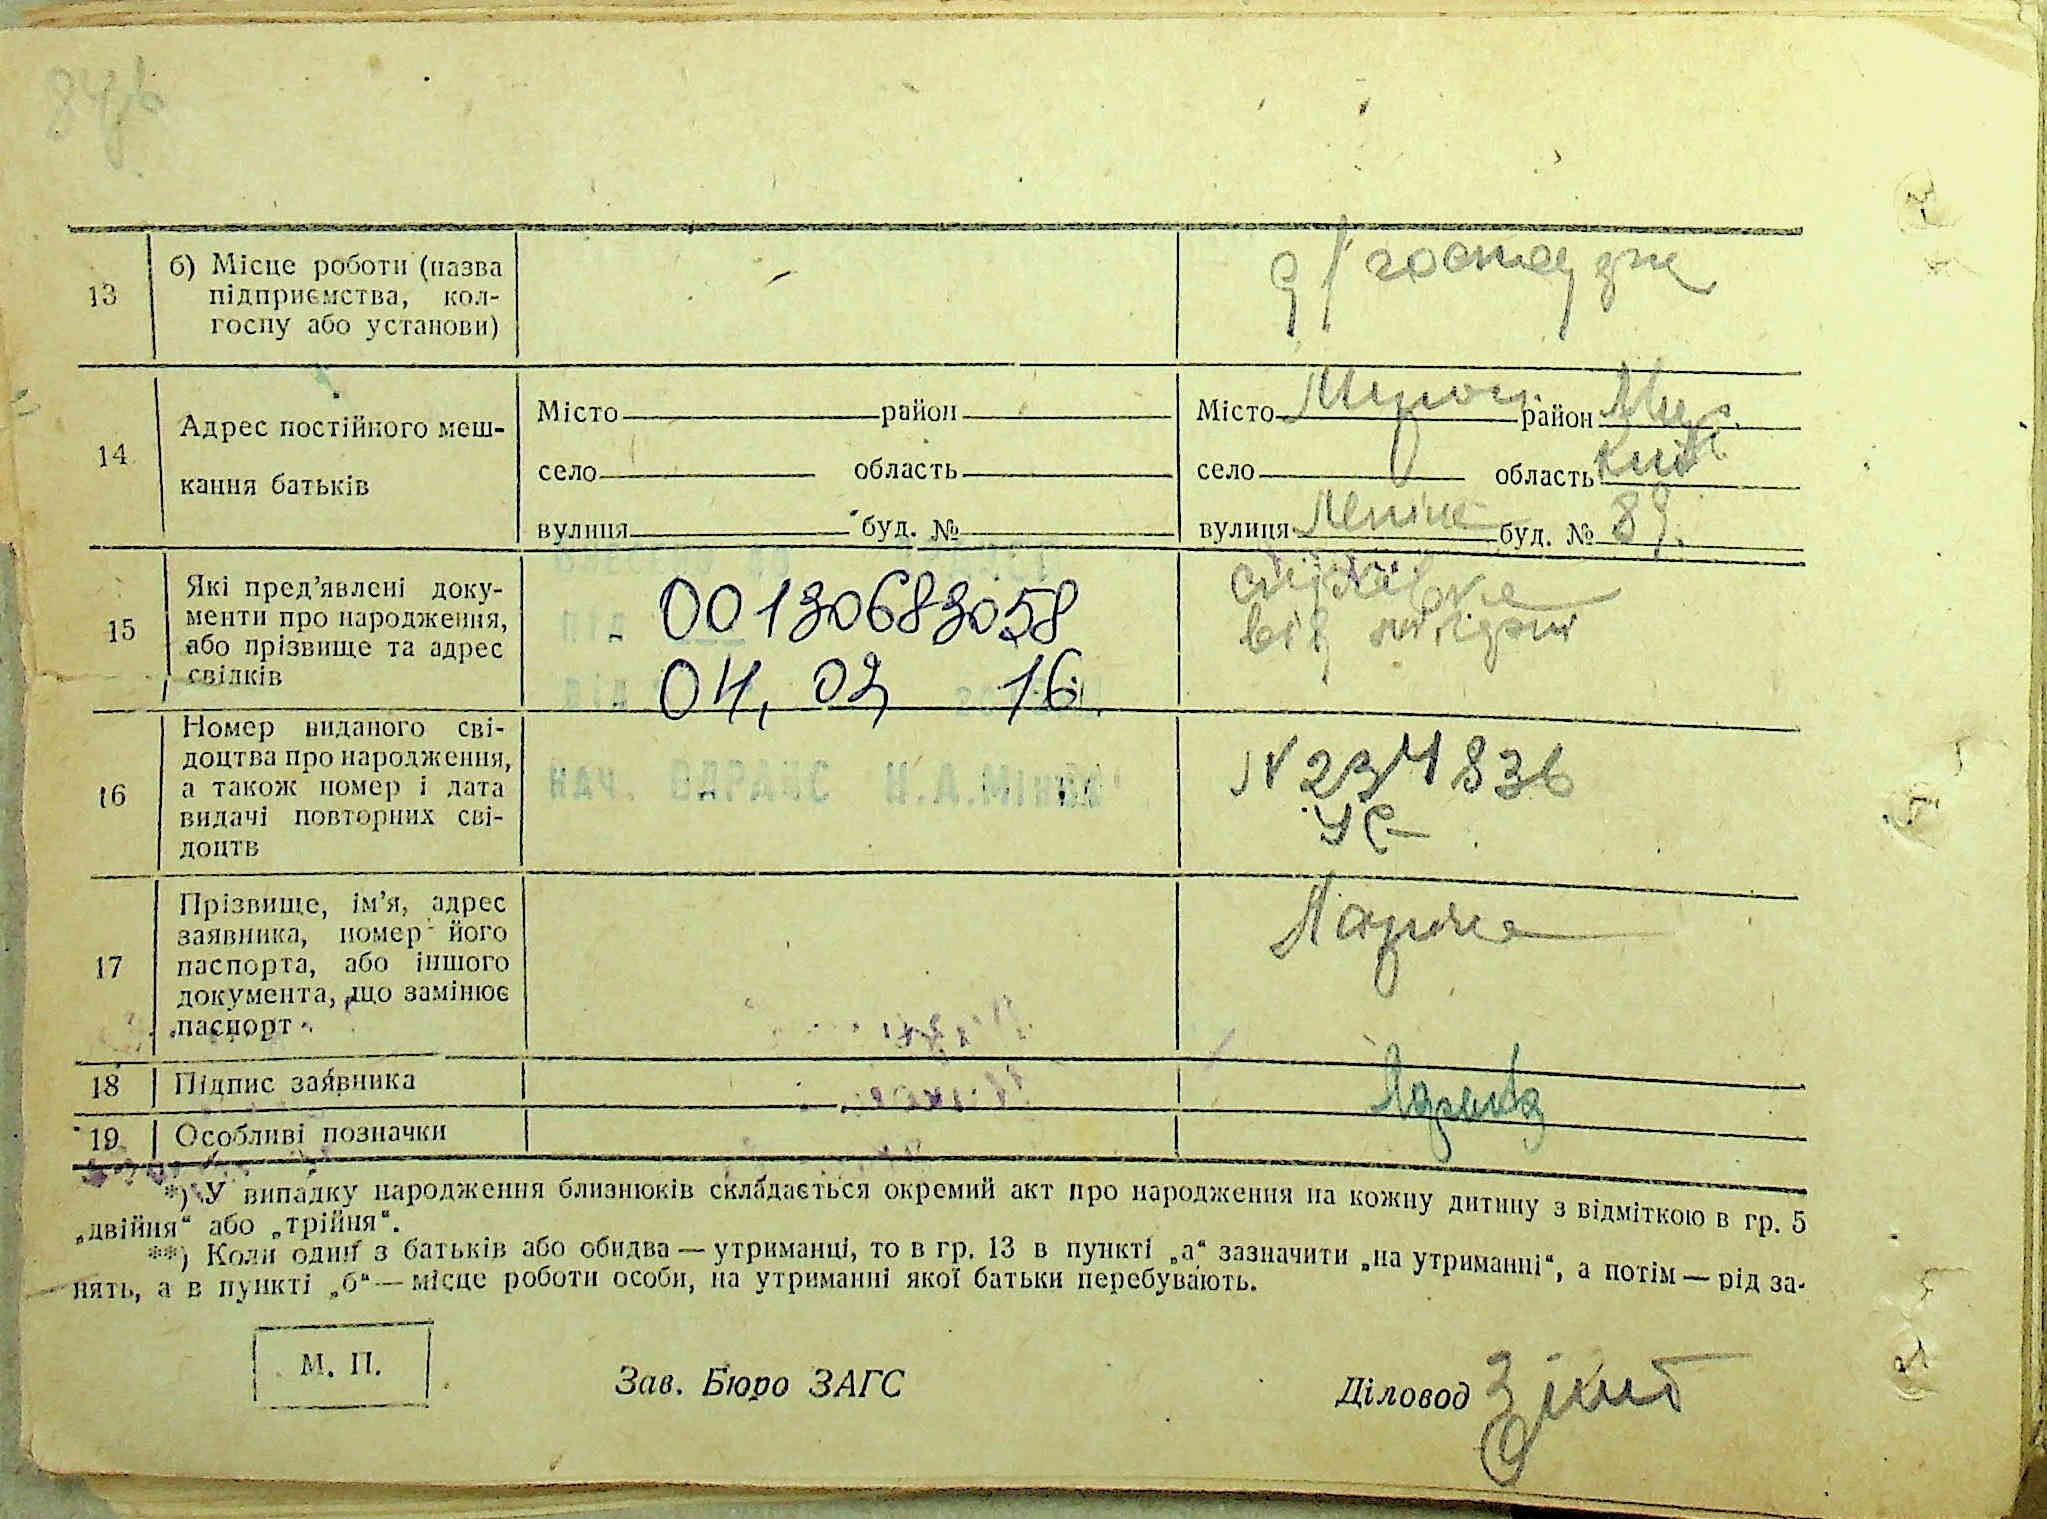 13
б) Місце роботи (назва
підприємства, кол-
госпу або установи)
д/господар
14
Адрес постійного меш-
кання батьків
Місто район
село область
вулиця буд. №
Місто район
село область Київ
вулиця Леніна буд. № 89.
15
Які пред’явлені доку-
менти про народження,
або прізвище та адрес
свідків
00130683058
04, 02 16.
довідка
від міліції
16
Номер виданого сві-
доцтва про народження,
а також номер і дата
видачі повторних сві-
доцтв
N 234836
УС
17
Прізвище, ім’я, адрес
заявника, номер його
паспорта, або іншого
документа, що замінює
паспорт
18 Підпис заявника
19 Особливі позначки
*) У випадку народження близнюків складається окремий акт про народження на кожну дитину з відміткою в гр. 5
„двійня“ або „трійня“.
**) Коли один з батьків або обидва — утриманці, то в гр. 13 в пункті „а“ зазначити „на утриманні“, а потім — рід за-
нять, а в пункті „б“ — місце роботи особи, на утриманні якої батьки перебувають.
М. П.
Зав. Бюро ЗАГС
Діловод